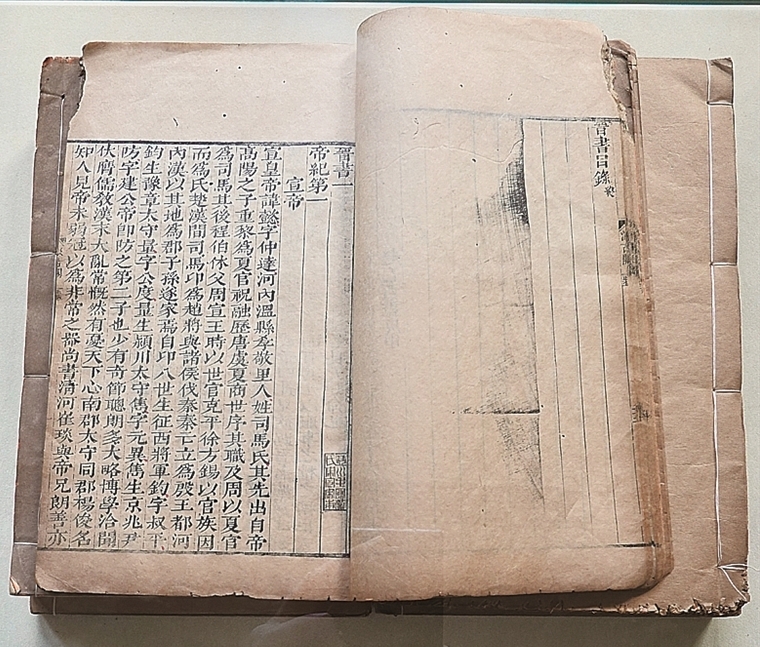 晉書目錄終
晉書一
帝紀第一
宣帝
宣皇帝諱懿字仲達河內溫縣孝敬里人姓司馬氏其先出自帝
高陽之子重黎爲夏官祝融歷唐虞夏商世序其職及周以夏官
爲司馬其後程伯休父周宣王時以世官克平徐方錫以官族因
而爲氏楚漢間司馬卬爲趙將與諸侯伐秦秦亡立爲殷王都河
內漢以其地爲郡子孫遂家焉自卬八世生征西將軍鈞字叔平
鈞生豫章太守量字公度量生潁川太守雋字元異雋生京兆尹
防字建公帝即防之第二子也少有奇節聰朗多大略博學洽聞
伏膺儒教漢末大亂常慨然有憂天下心南郡太守同郡楊俊名
知人見帝未弱冠以爲非常之器尚書清河崔琰與帝兄朗善亦